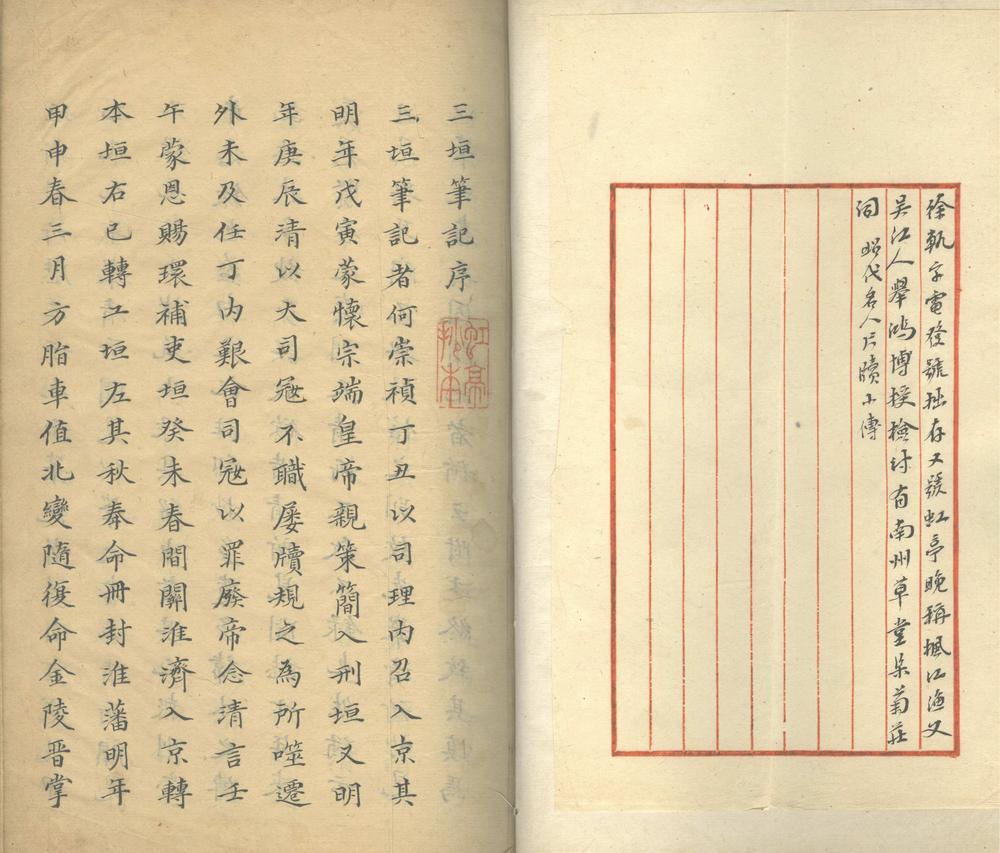 徐釚字電發號拙存又號虹亭晚稱楓江漁父
吳江人舉鴻博授檢討有南州草堂集菊莊
詞 昭代名人尺牘小傳
三垣筆記序
虹亭
三垣筆記者何崇禎丁丑以司理內召入京其
明年戊寅蒙懷宗端皇帝親策簡入刑垣又明
年庚辰清以大司冦不職屡牘規之為所噬遷
外未及任丁內艱會司冦以罪廢帝念清言壬
午蒙恩賜環補吏垣癸未春間關淮濟入京轉
本垣右已轉工垣左其秋奉命冊封淮藩明年
甲申春三月方脂車值北變隨復命金陵晋掌